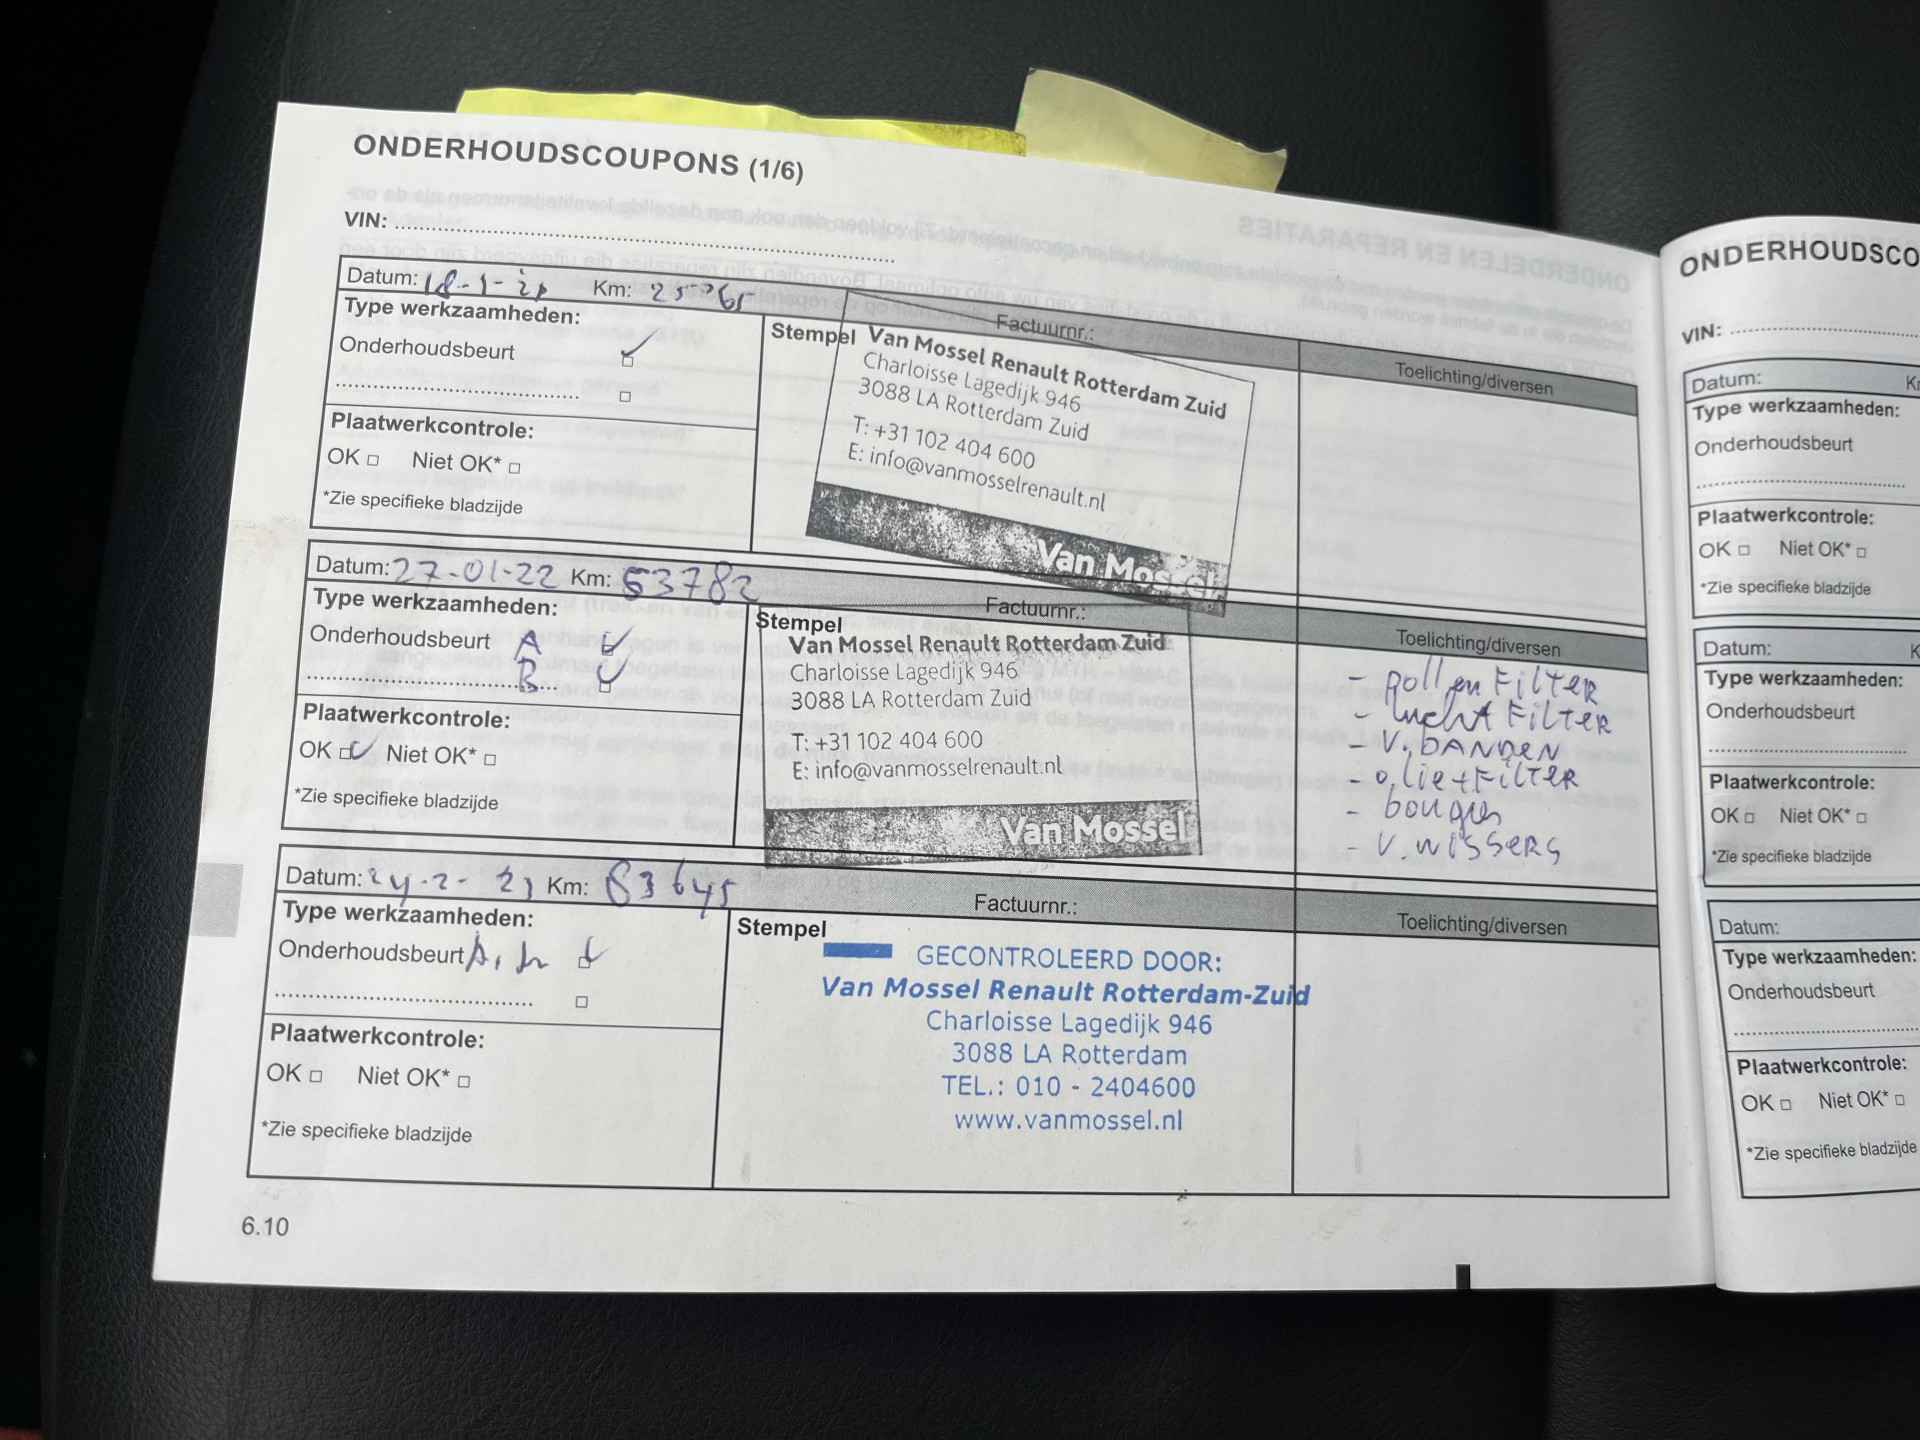 ONDERHOUDSCOUPONS (1/6)
VIN:
Datum: Km:
Factuurnr.:
Type werkzaamheden:
Onderhoudsbeurt
Plaatwerkcontrole:
OK Niet OK*
*Zie specifieke bladzijde
Stempel
Van Mossel Renault Rotterdam Zuid
Charloisse Lagedijk 946
3088 LA Rotterdam Zuid
T: +31 102 404 600
E: info@vanmosselrenault.nl
Van Mossel
Toelichting/diversen
Datum: 27-01-22 Km: 53782
Factuurnr.:
Type werkzaamheden:
Onderhoudsbeurt A
B
Plaatwerkcontrole:
OK Niet OK*
*Zie specifieke bladzijde
Stempel
Van Mossel Renault Rotterdam Zuid
Charloisse Lagedijk 946
3088 LA Rotterdam Zuid
T: +31 102 404 600
E: info@vanmosselrenault.nl
Van Mossel
Toelichting/diversen
- pollen FilTER
- lucht FilTER
- V. BANDEN
- olie + FilTER
- bougies
- V. wissers
Datum: 24-2-23 Km: 83645
Factuurnr.:
Type werkzaamheden:
Onderhoudsbeurt
Plaatwerkcontrole:
OK Niet OK*
*Zie specifieke bladzijde
Stempel
GECONTROLEERD DOOR:
Van Mossel Renault Rotterdam-Zuid
Charloisse Lagedijk 946
3088 LA Rotterdam
TEL.: 010 - 2404600
www.vanmossel.nl
Toelichting/diversen
6.10
ONDERHOUDSCO
VIN:
Datum:
Type werkzaamheden:
Onderhoudsbeurt
Plaatwerkcontrole:
OK Niet OK*
*Zie specifieke bladzijde
Datum:
Type werkzaamheden:
Onderhoudsbeurt
Plaatwerkcontrole:
OK Niet OK*
*Zie specifieke bladzijde
Datum:
Type werkzaamheden:
Onderhoudsbeurt
Plaatwerkcontrole:
OK Niet OK*
*Zie specifieke bladzijde